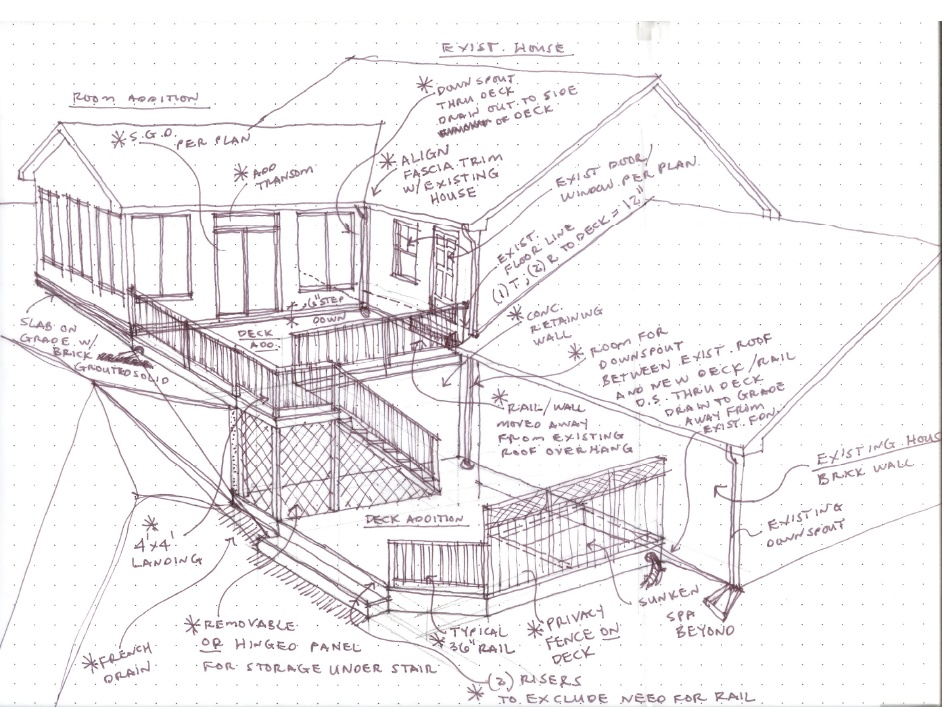 EXIST. HOUSE
ROOM ADDITION
* DOWNSPOUT
THRU DECK
DRAIN OUT TO SIDE
OF DECK
* S.G.D.
PER PLAN
* ADD
TRANSOM
* ALIGN
FASCIA TRIM
W/ EXISTING
HOUSE
EXIST DOOR/
WINDOW PER PLAN.
EXIST.
FLOOR LINE
(1) T, (2) R TO DECK = 12"
* 6" STEP
DOWN
DECK
ADD.
* CONC.
RETAINING
WALL
SLAB ON
GRADE W/
BRICK
GROUTED SOLID
* ROOM FOR
DOWNSPOUT
BETWEEN EXIST. ROOF
AND NEW DECK/RAIL
D.S. THRU DECK
DRAIN TO GRADE
AWAY FROM
EXIST. FDN.
* RAIL/WALL
MOVED AWAY
FROM EXISTING
ROOF OVERHANG
EXISTING HOUS
BRICK WALL
EXISTING
DOWNSPOUT
DECK ADDITION
* 4'x4'
LANDING
SUNKEN
SPA
BEYOND
* FRENCH
DRAIN
* REMOVABLE
OR HINGED PANEL
FOR STORAGE UNDER STAIR
* TYPICAL
36" RAIL
* PRIVACY
FENCE ON
DECK
* (3) RISERS
TO EXCLUDE NEED FOR RAIL